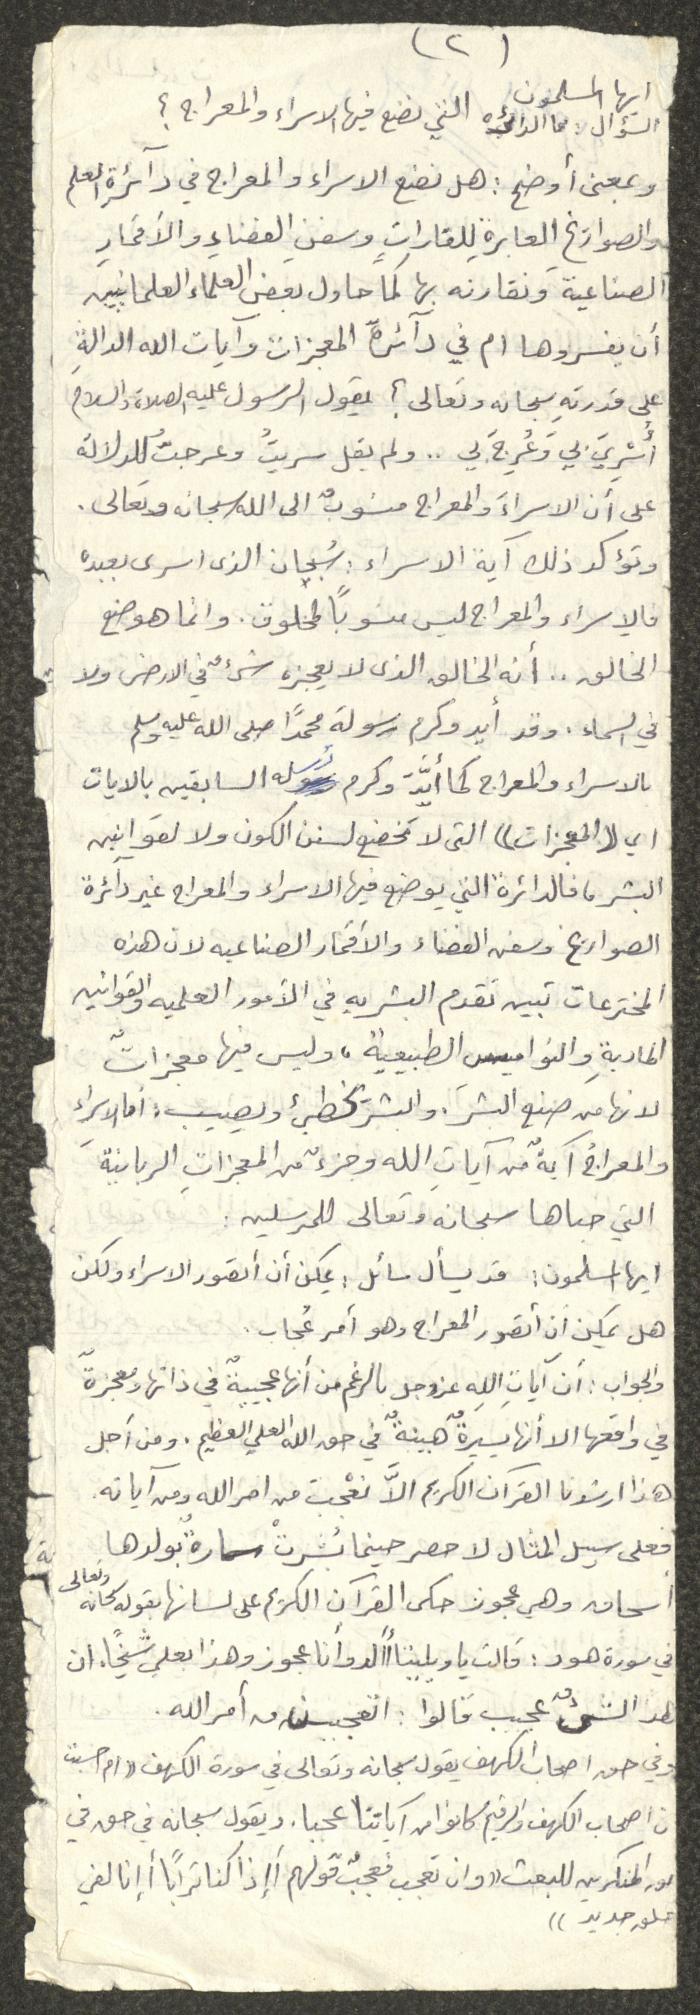 (٢)
ايها المسلمون
السؤال: ما الدائرة التي نضع فيها الاسراء والمعراج ؟
وبمعنى أوضح : هل نضع الاسراء والمعراج في دآئرةِ العلم
والصواريخ العابرةِ للقاراتِ وسفنِ الفضاءِ والأقمارِ
الصناعية ونقارنه بها كما حاول بعض العلماء العلمانيين
أن يفسروها ام في دآئرة المعجزات وآيات الله الدالةِ
على قدرتهِ سبحانه وتعالى ؟ يقول الرسول عليه الصلاة والسلام
أُسْرِيَ بي وَعُرِجَ بي .. ولم يقل سريتُ وعرجتُ للدلالة
على أن الاسراءَ والمعراج منسوبٌ الى الله سبحانه وتعالى .
وتؤكد ذلك آية الاسراء : سُبحان الذى اسرى بعبده
فالاسراء والمعراج ليس منسوباً لمخلوق . وانما هو صنع
الخالق .. أنه الخالق الذى لا يعجزه شئٌ في الارض ولا
في السماء . وقد أيد وكرم رسولَه محمدًا صلى الله عليه وسلم
بالاسراء والمعراج كما أيَّدَ وكرم رسله السابقين بالايات
اي ((المعجزات)) التى لا تخضع لسنن الكون ولا لقوانين
البشر ، فالدائرة التي يوضع فيها الاسراء والمعراج غير دآئرة
الصواريخ وسفن الفضاء والأقمار الصناعيه لان هذه
المخترعات تبين تقدم البشريه في الأمور العلميه والقوانين
الماديةِ والنواميس الطبيعية ، وليس فيها معجزاتٌ
لانها من صنع البشر . والبشر تخطئ ويصيب : أما الاسراءِ
والمعراجُ آيةٌ من آياتِ الله وجزءٌ من المعجزاتِ الربانية
التي حباها سبحانه وتعالى للمرسلين :
ايها المسلمون : قد يسأل سائل : يمكن أن أتصور الاسراء ولكن
هل يمكن أن أتصور المعراج وهو أمر عُجاب .
والجواب : أن آياتِ اللهِ عزوجل بالرغم من أنها عجيبةٌ في ذاتها ومعجزةٌ
في واقعها الا أنها يسيرةٌ هينةٌ في حق الله العلي العظيم . ومن أجل
هذا ارشدنا القرآن الكريم الاَّ نعْجبَ من امر الله ومن آياته .
فعلى سبيل المثال لا حصر حينما بُشرتْ سارةٌ بولدها
أسحاق وهي عجوز حكى القرآن الكريم على لسانها بقوله سبحانه وتعالى
في سورة هود : قالت ياويلتاأألد وأنا عجوز وهذا بعلي شيخًا ، ان
هذا لشئٌ عجيب قالوا : اتعجبين من أمر الله .
وفي حق اصحاب الكهف يقول سبحانه وتعالى في سورة الكهف ((ام حسبت
ن اصحاب الكهف والرقيم كانوا من آياتنا عجبا . ويقول سبحانه في حق في
المنكرين للبعث ((وان تعجب فعجبٌ قولهم أإذا كنا ترابًا أإنا لفي
خلق جديد ))